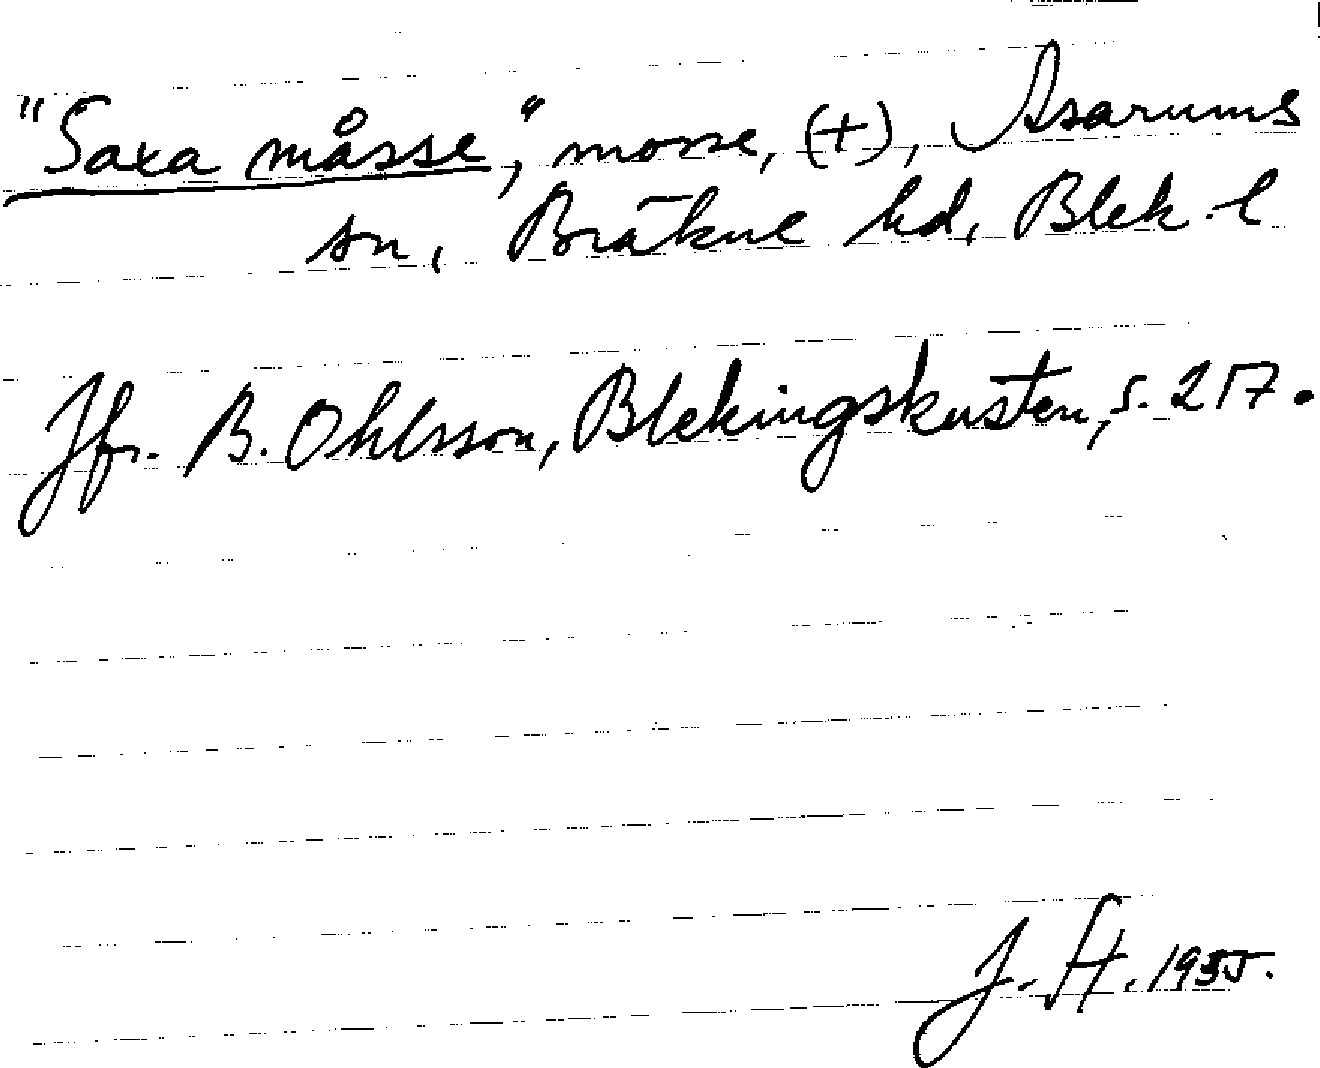 "Saxa måsse", mosse, (+), Asarums
sn, Bräkne hd, Blek. l
Jfr. B. Ohlsson, Blekingskusten, s. 217.
J. H. 1955.